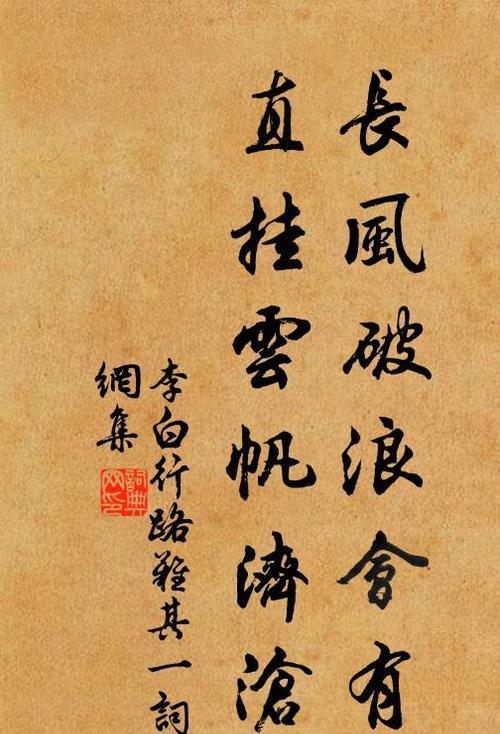 長風破浪會有
直挂雲帆濟滄
李白行路難其一詞
網集
詞典網印